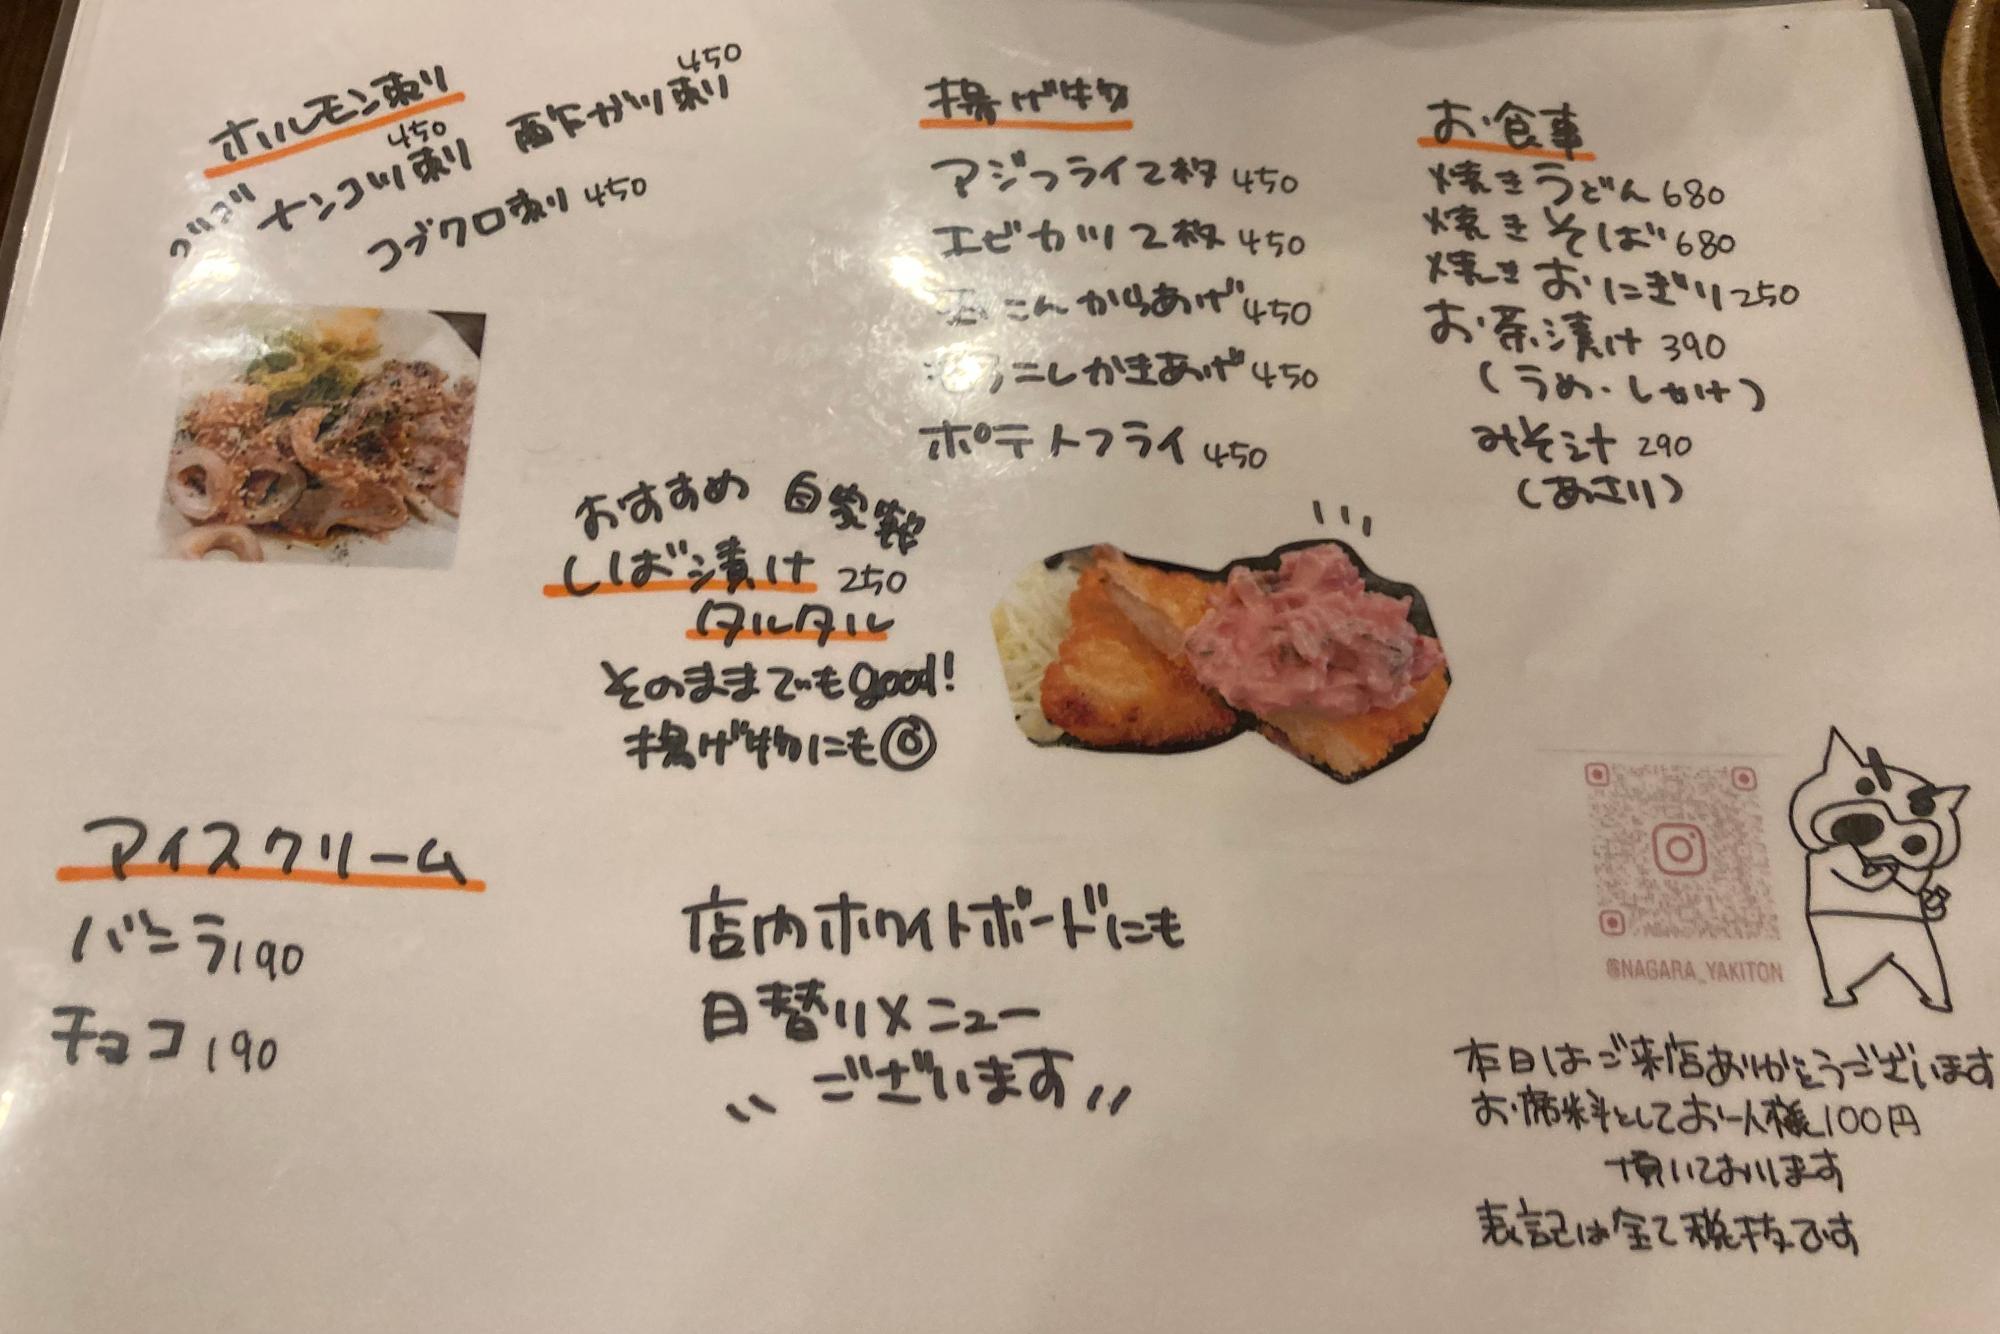 ホルモン刺り
コリコリ ナンコツ刺り 450
酢ガツ刺り 450
コブクロ刺り 450
揚げ物
アジフライ2枚 450
エビカツ2枚 450
こんからあげ 450
しかきあげ 450
ポテトフライ 450
お食事
焼きうどん 680
焼きそば 680
焼きおにぎり 250
お茶漬け 390
(うめ・しゃけ)
みそ汁 290
(あさり)
おすすめ 自家製
しば漬け 250
タルタル
そのままでもgood!
揚げ物にも◎
アイスクリーム
バニラ 190
チョコ 190
店内ホワイトボードにも
日替りメニュー
ございます
@NAGARA_YAKITON
本日はご来店ありがとうございます
お席料としてお一人様100円
頂いております
表記は全て税抜です